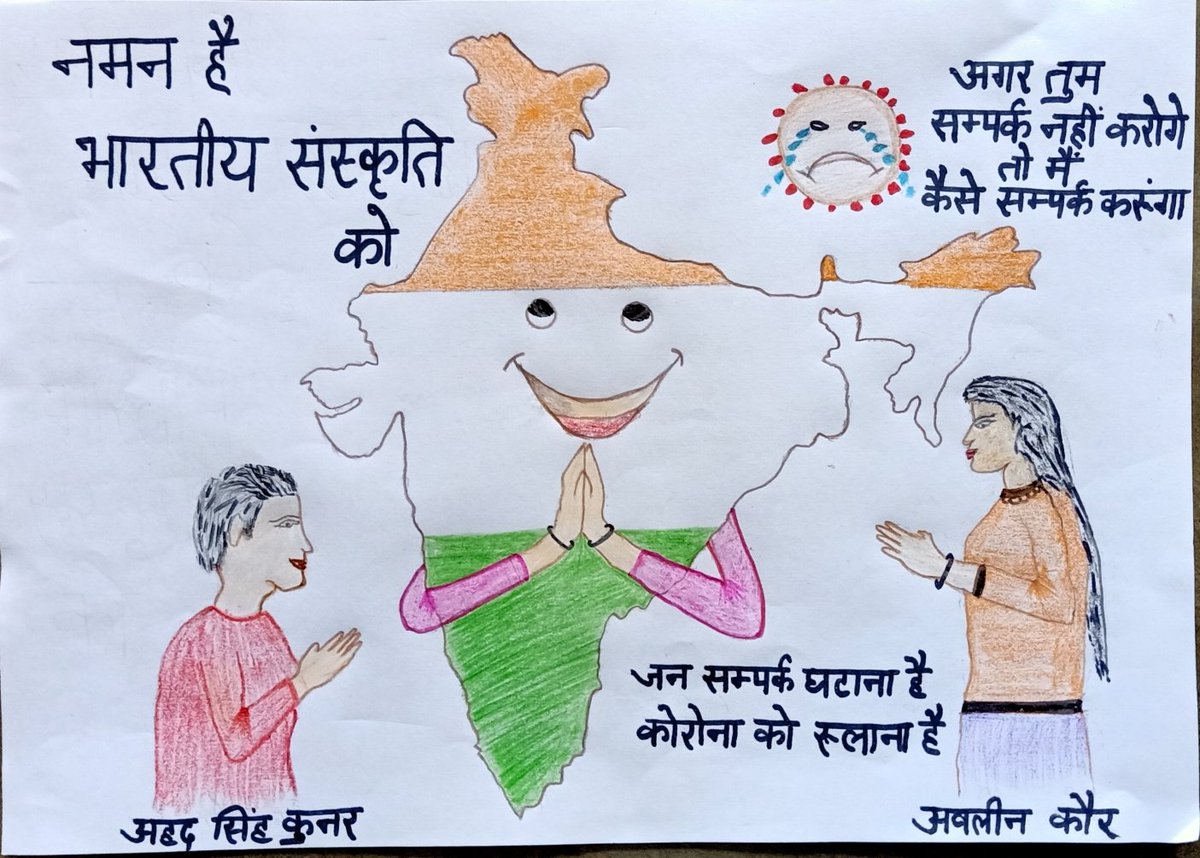 नमन है
भारतीय संस्कृति
को
अगर तुम
सम्पर्क नहीं करोगे
तो मैं
कैसे सम्पर्क करूंगा
जन सम्पर्क घटाना है
कोरोना को रूलाना है
अहद सिंह कुनर
अवलीन कौर